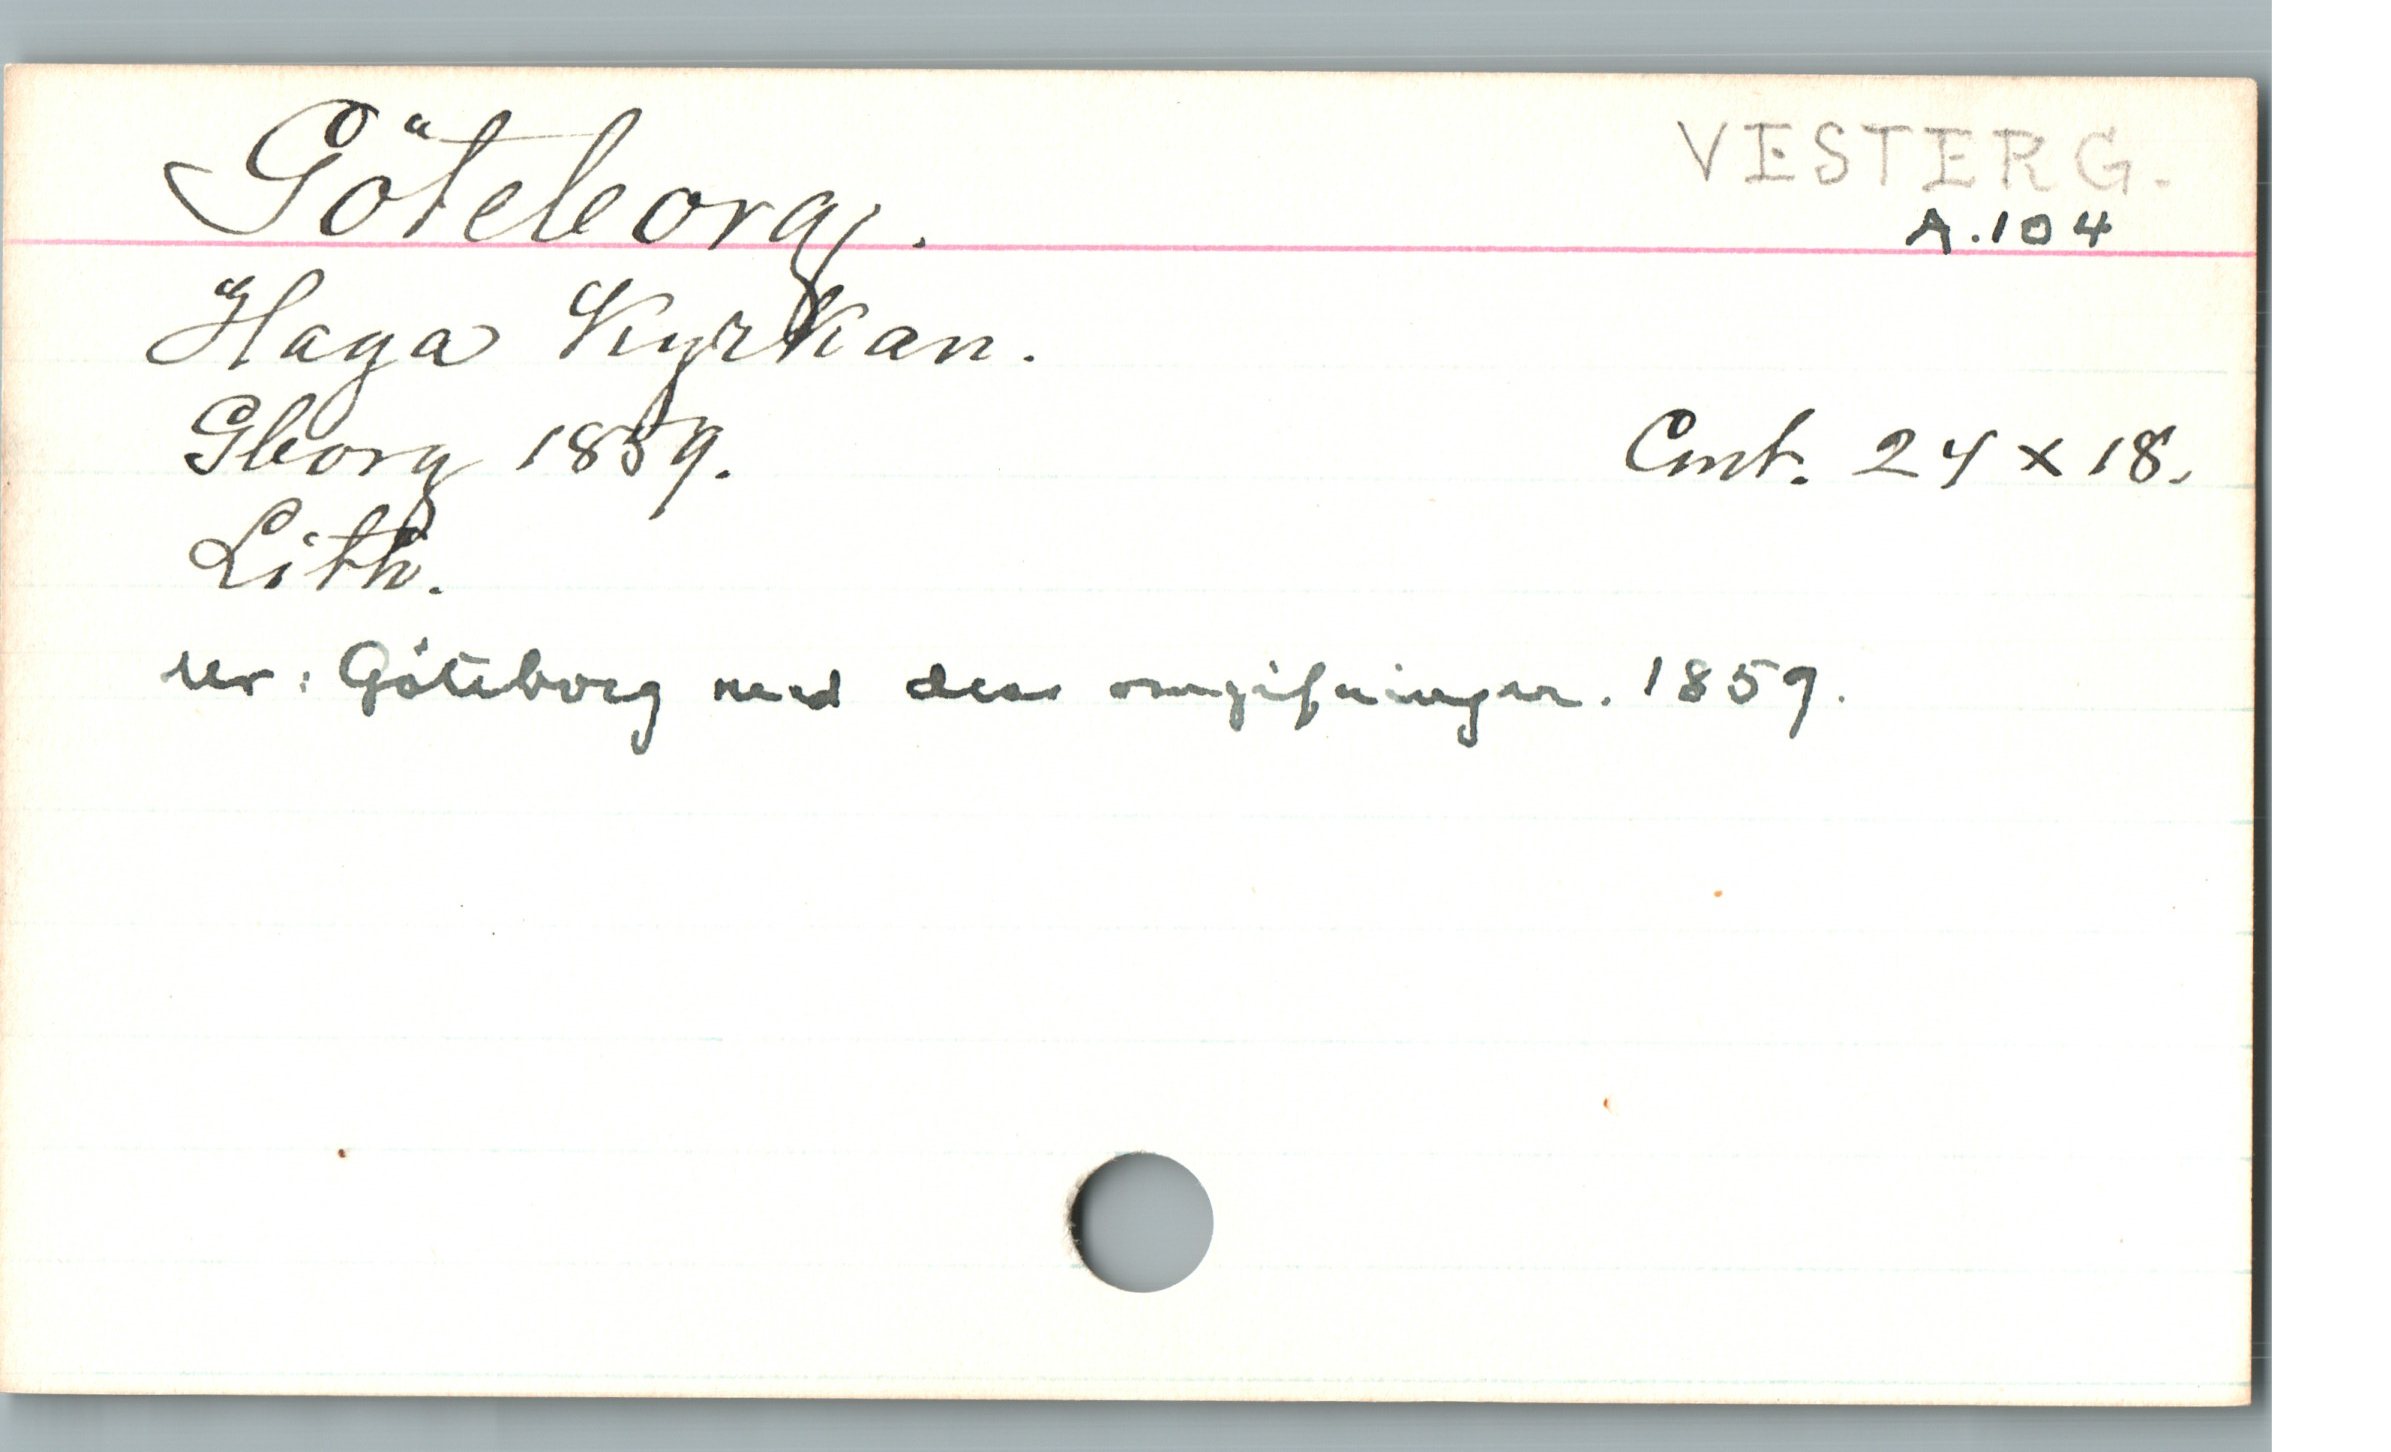 Göteborg.
VESTERG.
A.104
Haga Kyrkan.
Gborg 1859.
Cmt. 24 x 18.
Lith.
ur: Göteborg med dess omgifningar. 1859.